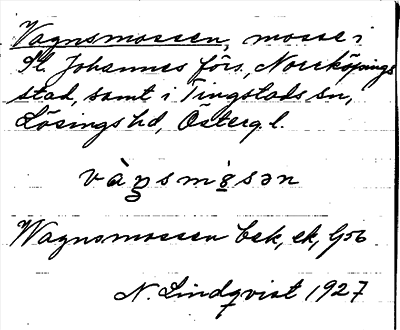 Vagnsmossen, mosse i
S:t Johannes förs., Norrköpings
stad, samt i Tingstads sn,
Lösings hd, Österg. l.
Wagnsmossen bek, ek, 
N. Lindqvist 1927